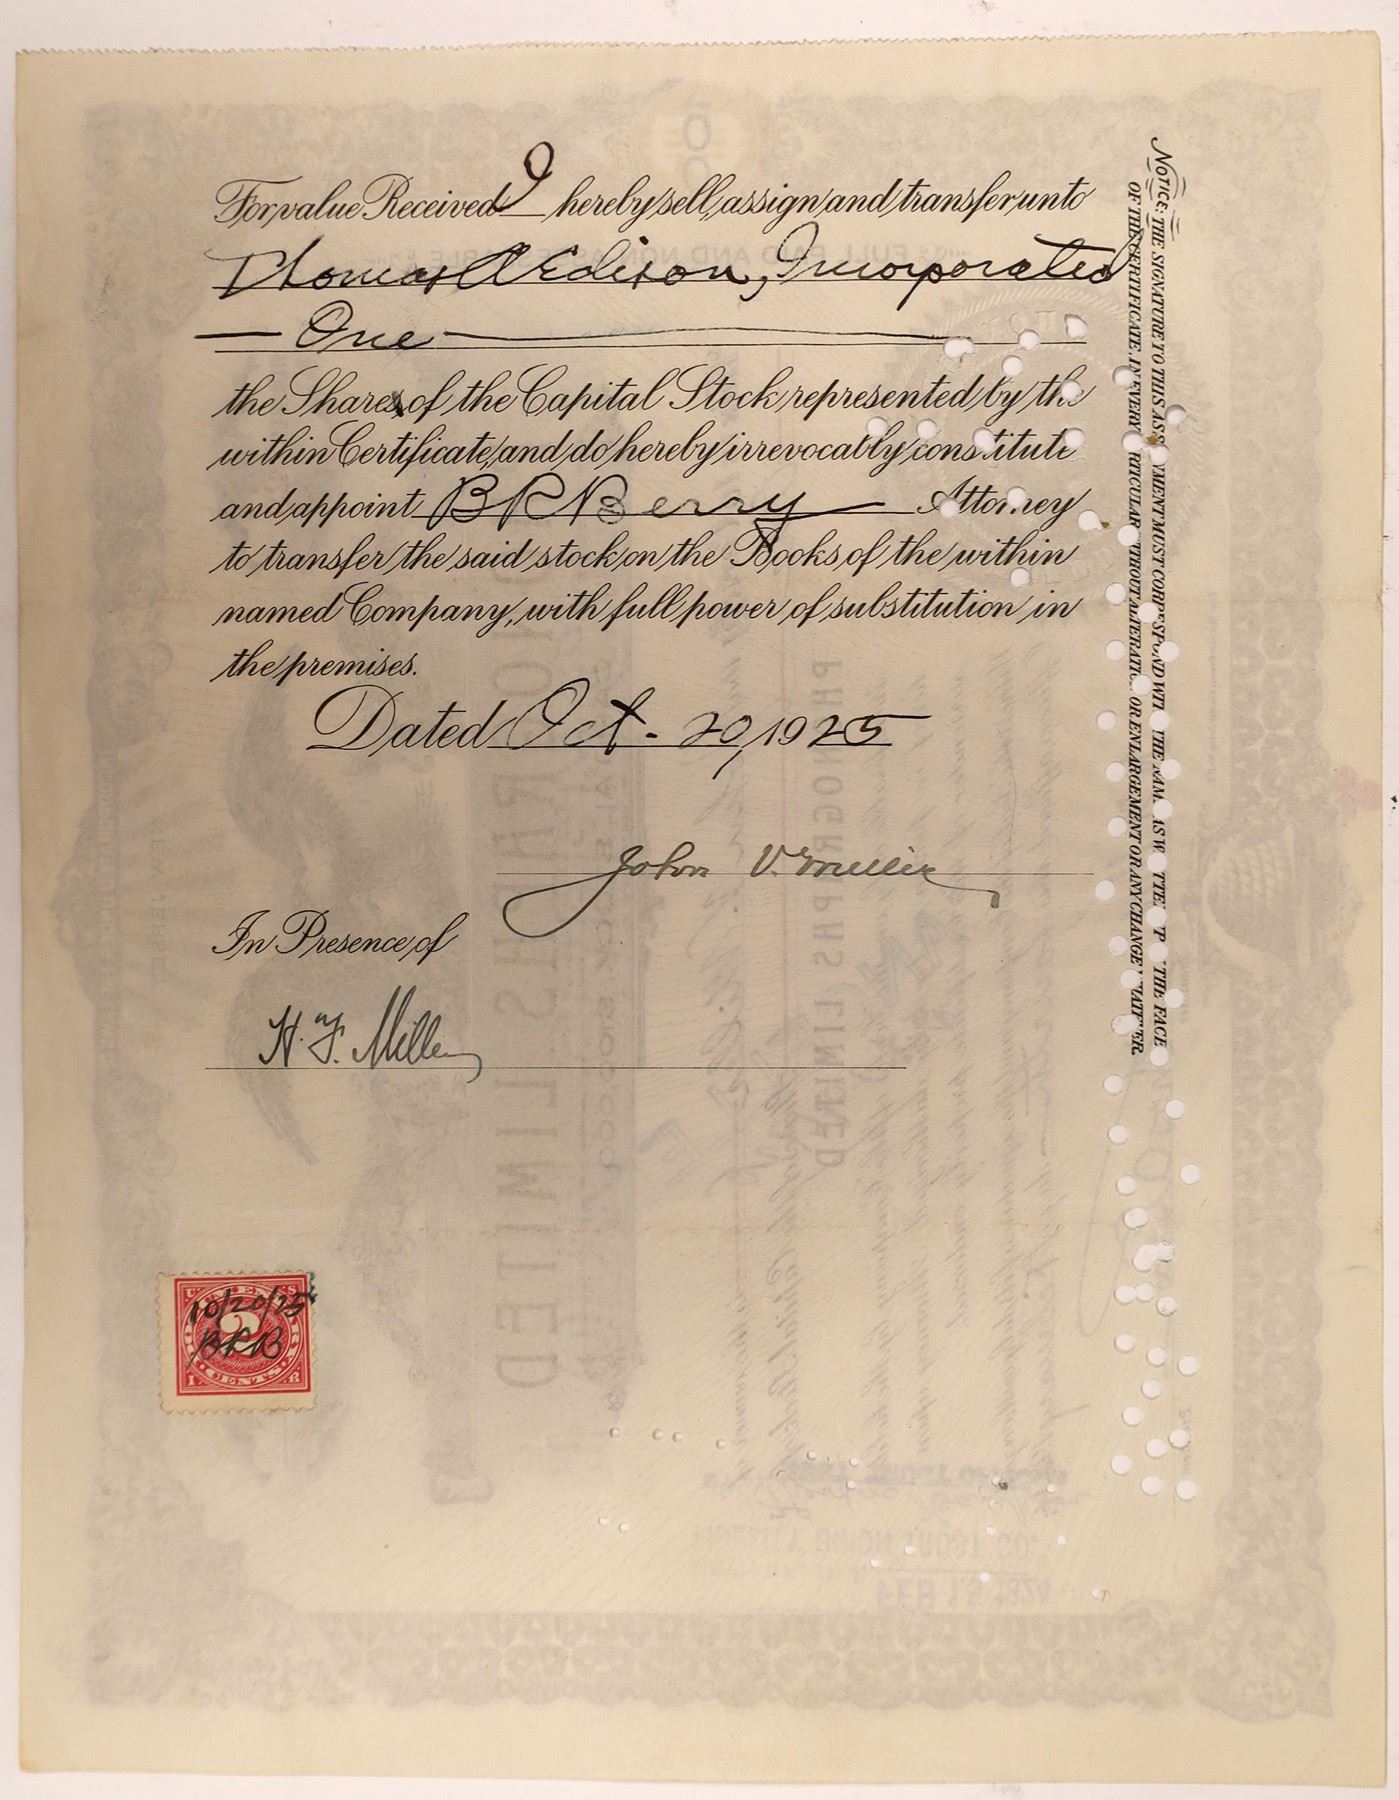 For value Received I hereby sell, assign and transfer unto
Thomas A Edison, Incorporated
— One —
the Shares of the Capital Stock represented by the
within Certificate, and do hereby irrevocably constitute
and appoint B R Berry Attorney
to transfer the said stock on the Books of the within
named Company, with full power of substitution in
the premises.
Dated Oct. 20, 1925
John V. Miller
In Presence of
H. F. Miller
NOTICE: THE SIGNATURE TO THIS ASSIGNMENT MUST CORRESPOND WITH THE NAME AS WRITTEN UPON THE FACE
OF THE CERTIFICATE, IN EVERY PARTICULAR WITHOUT ALTERATION OR ENLARGEMENT OR ANY CHANGE WHATEVER.
10/20/25
BRB
2
CENTS
PHONOGRAPHS LIMITED
FEB 15 1924